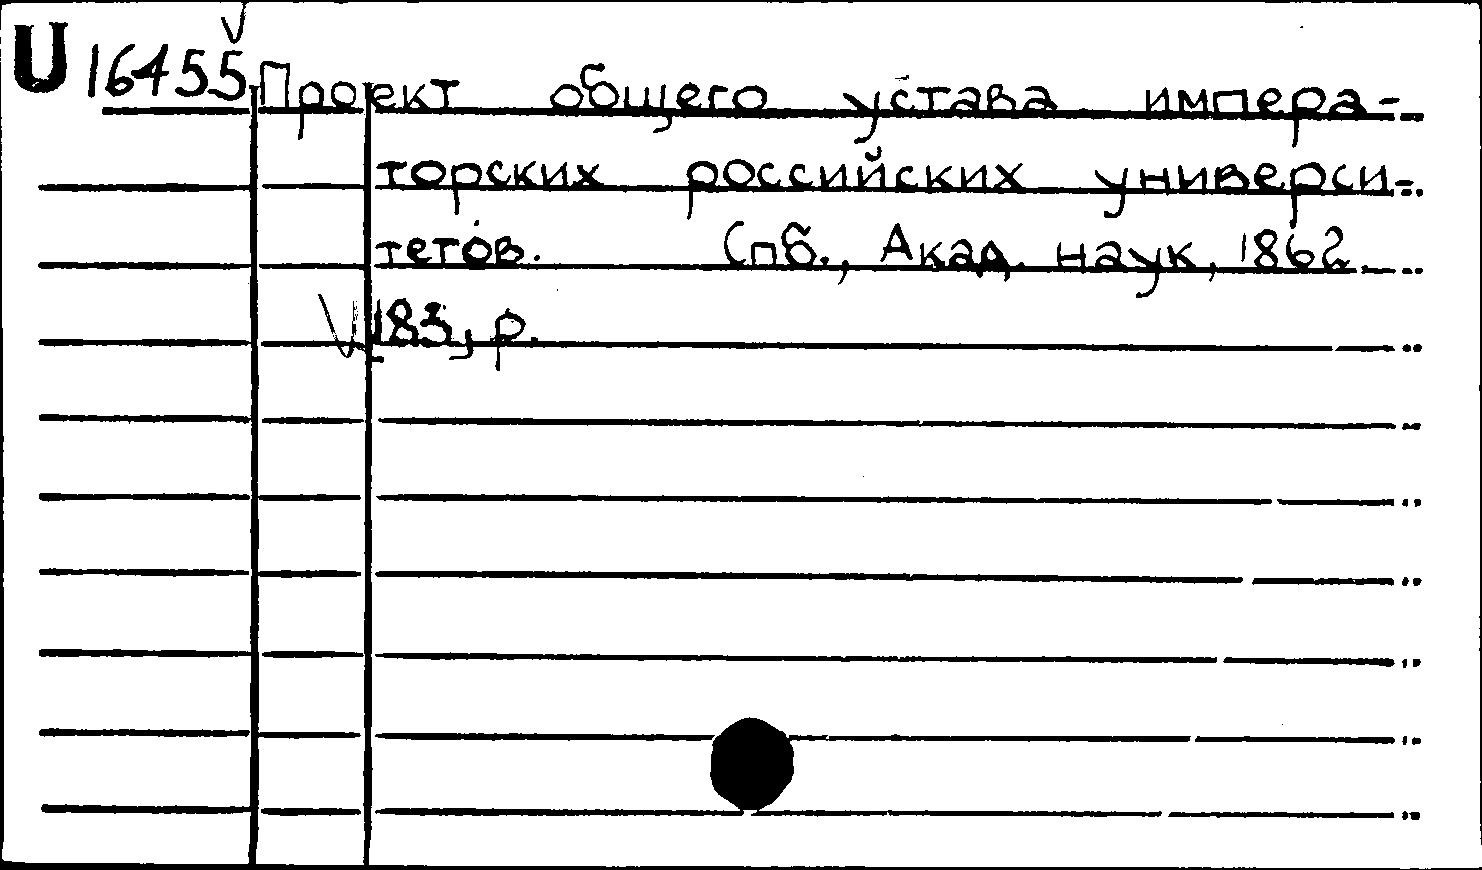 U 16455 Проект общего устава импера-
торских российских универси-
тетов. Спб., Акад. наук, 1862.
183, р.